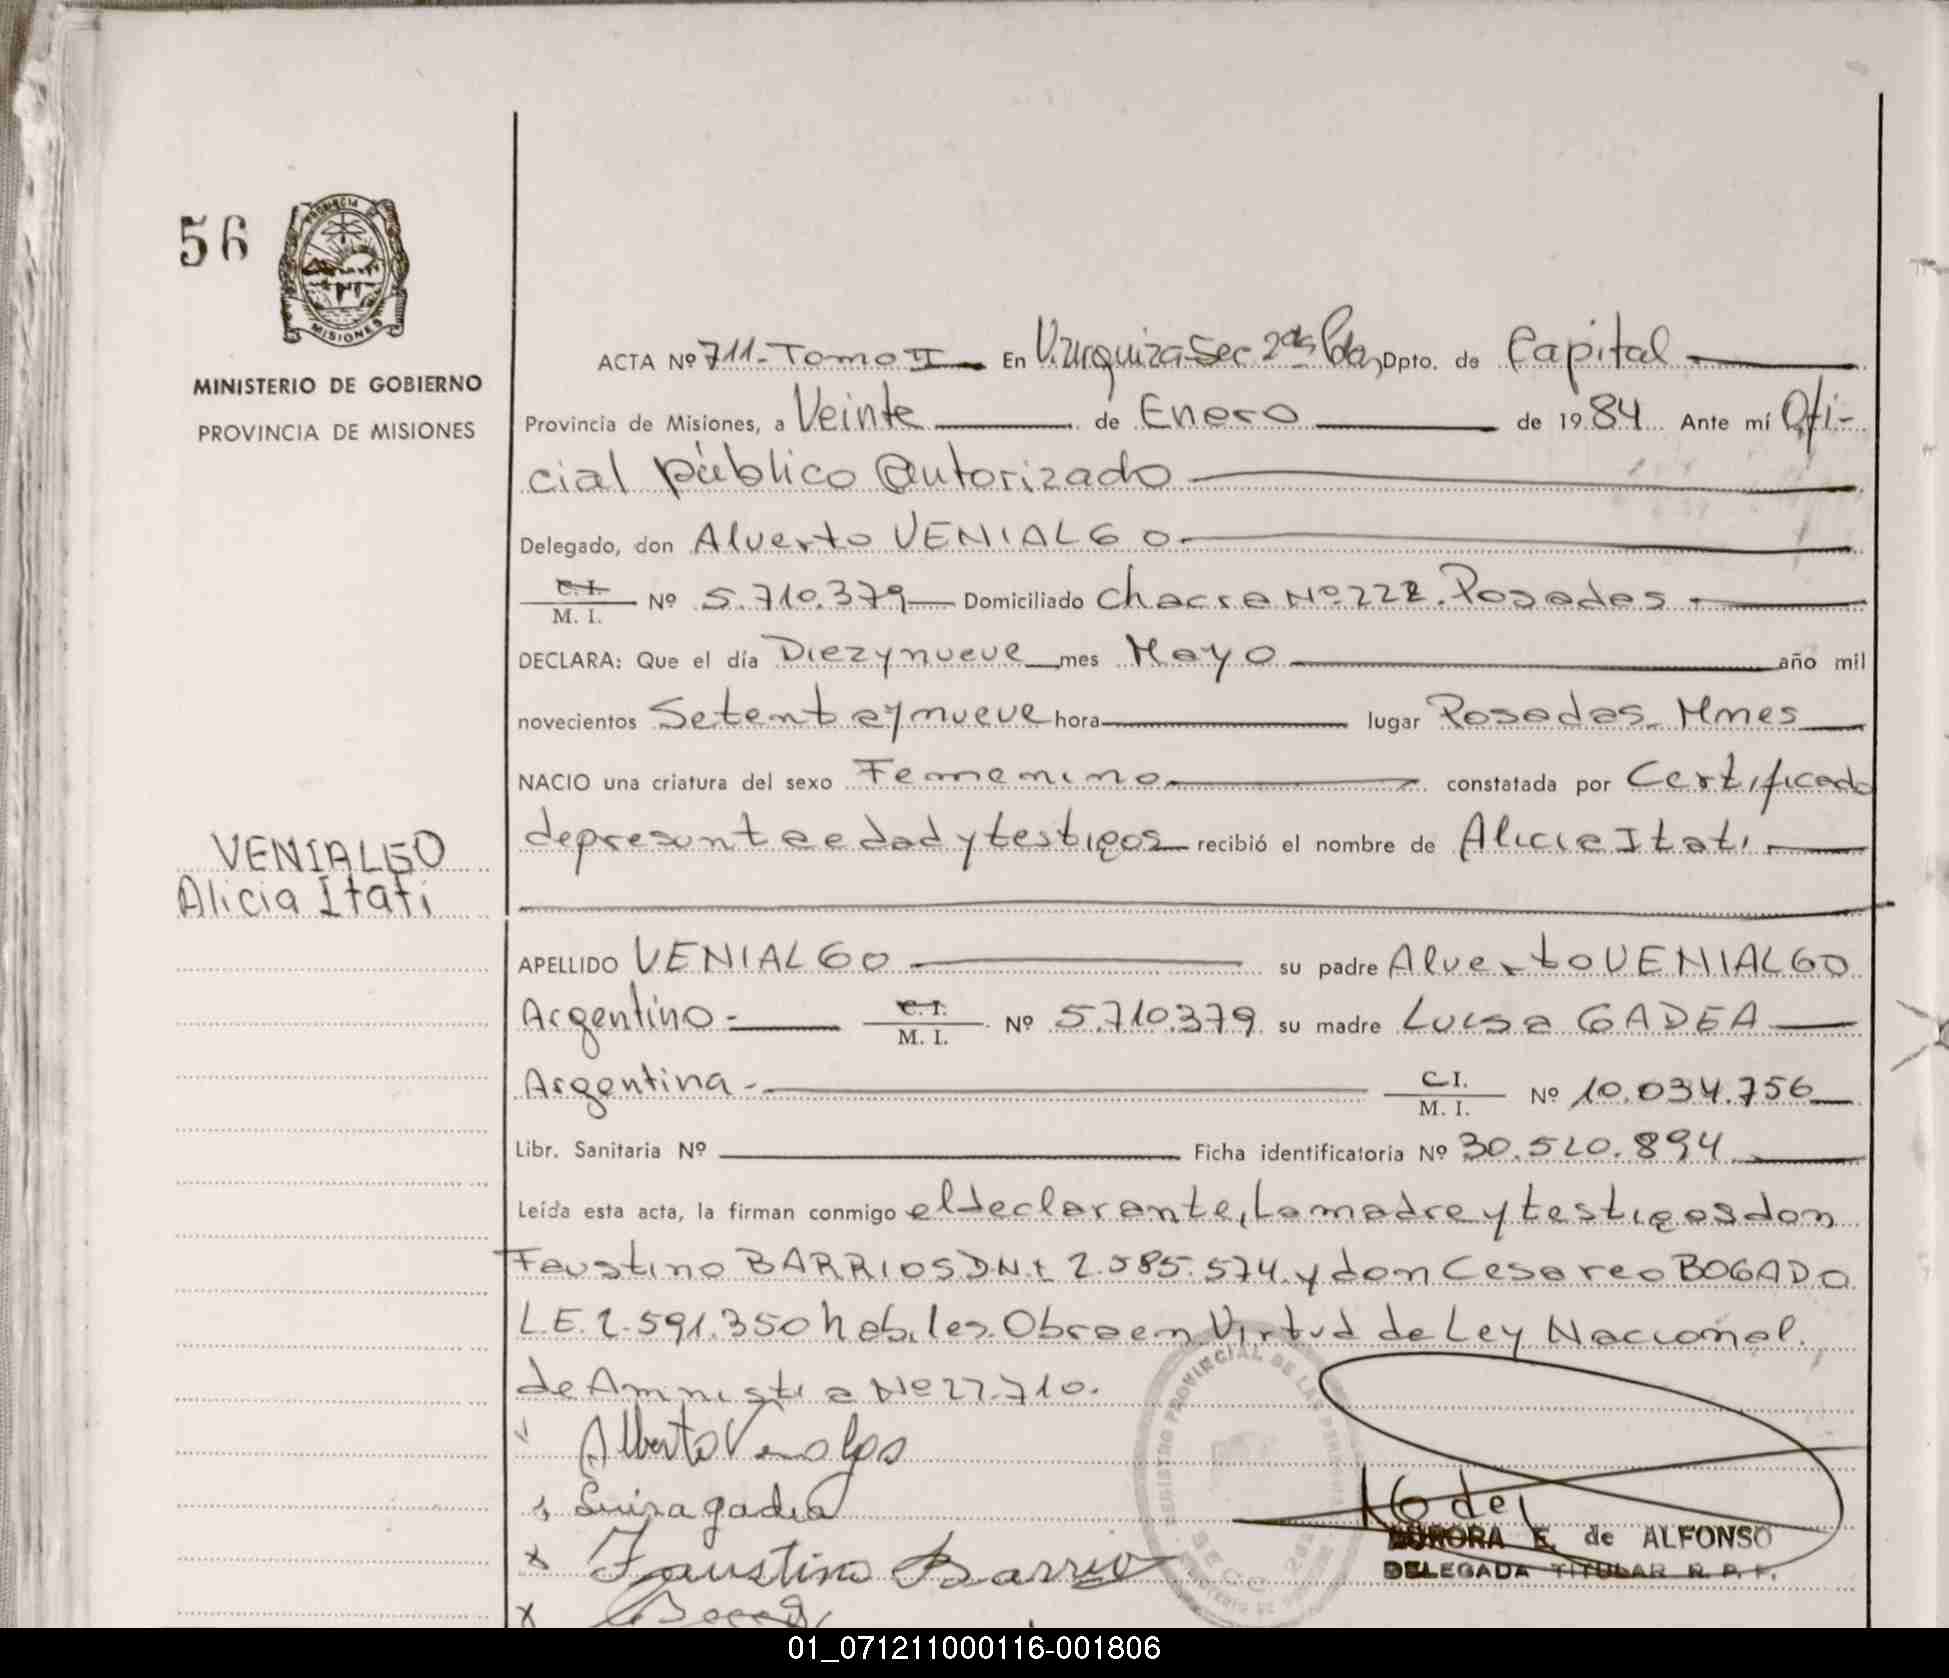 56
PROVINCIA DE
MISIONES
MINISTERIO DE GOBIERNO
PROVINCIA DE MISIONES
ACTA Nº 711-Tomo II En V. Urquiza Sec 2da Dpto. de Capital
Provincia de Misiones, a Veinte de Enero de 1984 Ante mí Ofi-
cial público Autorizado
Delegado, don Alverto VENIALGO
C.I.
M. I. Nº 5.710.379 Domiciliado Chacra Nº 222. Posadas
DECLARA: Que el día Diez y nueve mes Mayo año mil
novecientos Setenta y nueve hora lugar Posadas Mnes
NACIO una criatura del sexo Femenino constatada por Certificado
de presunta edad y testigos recibió el nombre de Alicia Itati
VENIALGO
Alicia Itati
APELLIDO VENIALGO su padre Alverto VENIALGO
Argentino- C.I.
M. I. Nº 5.710.379 su madre Luisa GADEA
Argentina- C.I.
M. I. Nº 10.034.756
Libr. Sanitaria Nº Ficha identificatoria Nº 30.520.894
Leída esta acta, la firman conmigo el declarante, La madre y testigos don
Faustino BARRIOS DNI 2.585.574 y don Cesareo BOGADO
L.E. 2.591.350 habiles. Obra en Virtud de Ley Nacional
de Amnistia Nº 22.710.
Alberto Venialgo
Luisa gadea
Faustino Barrio
AURORA E. de ALFONSO
DELEGADA TITULAR R. P. P.
REGISTRO PROVINCIAL DE LAS PERSONAS
01_071211000116-001806